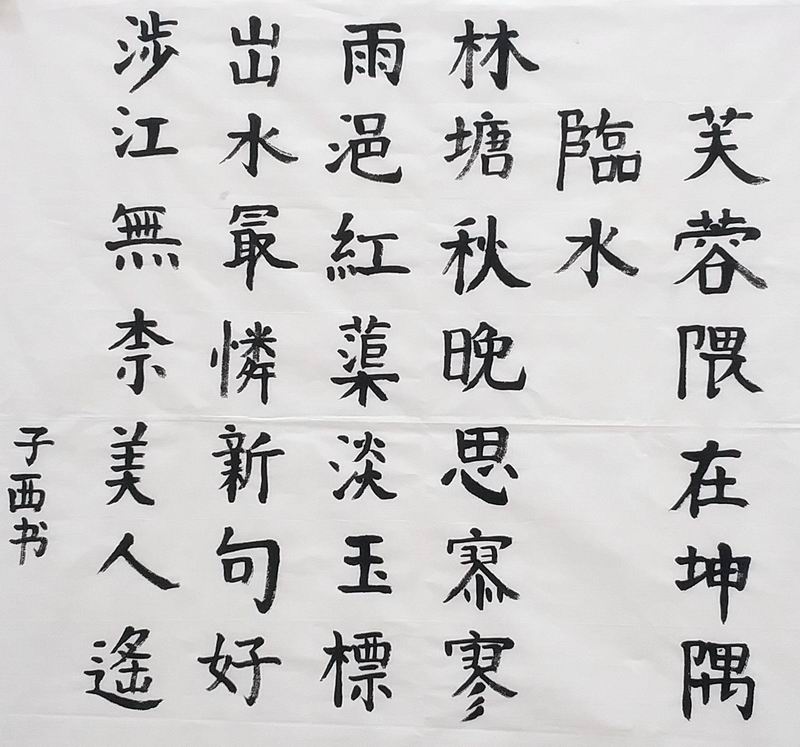 芙蓉隈在坤隅
臨水
林塘秋晚思寥寥
雨浥紅蕖淡玉標
出水最憐新句好
涉江無柰美人遙
子西书